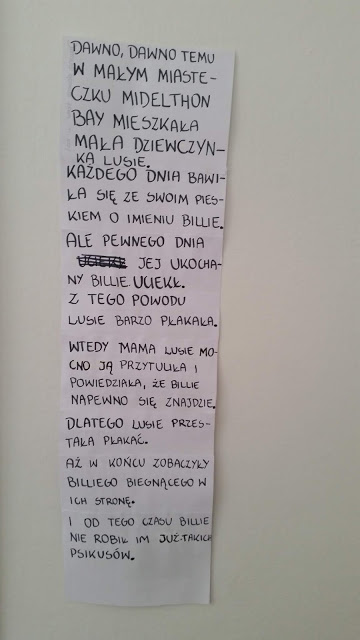 DAWNO, DAWNO TEMU
W MAŁYM MIASTE-
CZKU MIDELTHON
BAY MIESZKAŁA
MAŁA DZIEWCZYN-
KA LUSIE.
KAŻDEGO DNIA BAWI-
ŁA SIĘ ZE SWOIM PIES-
KIEM O IMIENIU BILLIE.
ALE PEWNEGO DNIA
JEJ UKOCHA-
NY BILLIE UCIEKŁ.
Z TEGO POWODU
LUSIE BARZO PŁAKAŁA.
WTEDY MAMA LUSIE MO-
CNO JĄ PRZYTULIŁA I
POWIEDZIAŁA, ŻE BILLIE
NAPEWNO SIĘ ZNAJDZIE.
DLATEGO LUSIE PRZES-
TAŁA PŁAKAĆ.
AŻ W KOŃCU ZOBACZYŁY
BILLIEGO BIEGNĄCEGO W
ICH STRONĘ.
I OD TEGO CZASU BILLIE
NIE ROBIŁ IM JUŻ TAKICH
PSIKUSÓW.